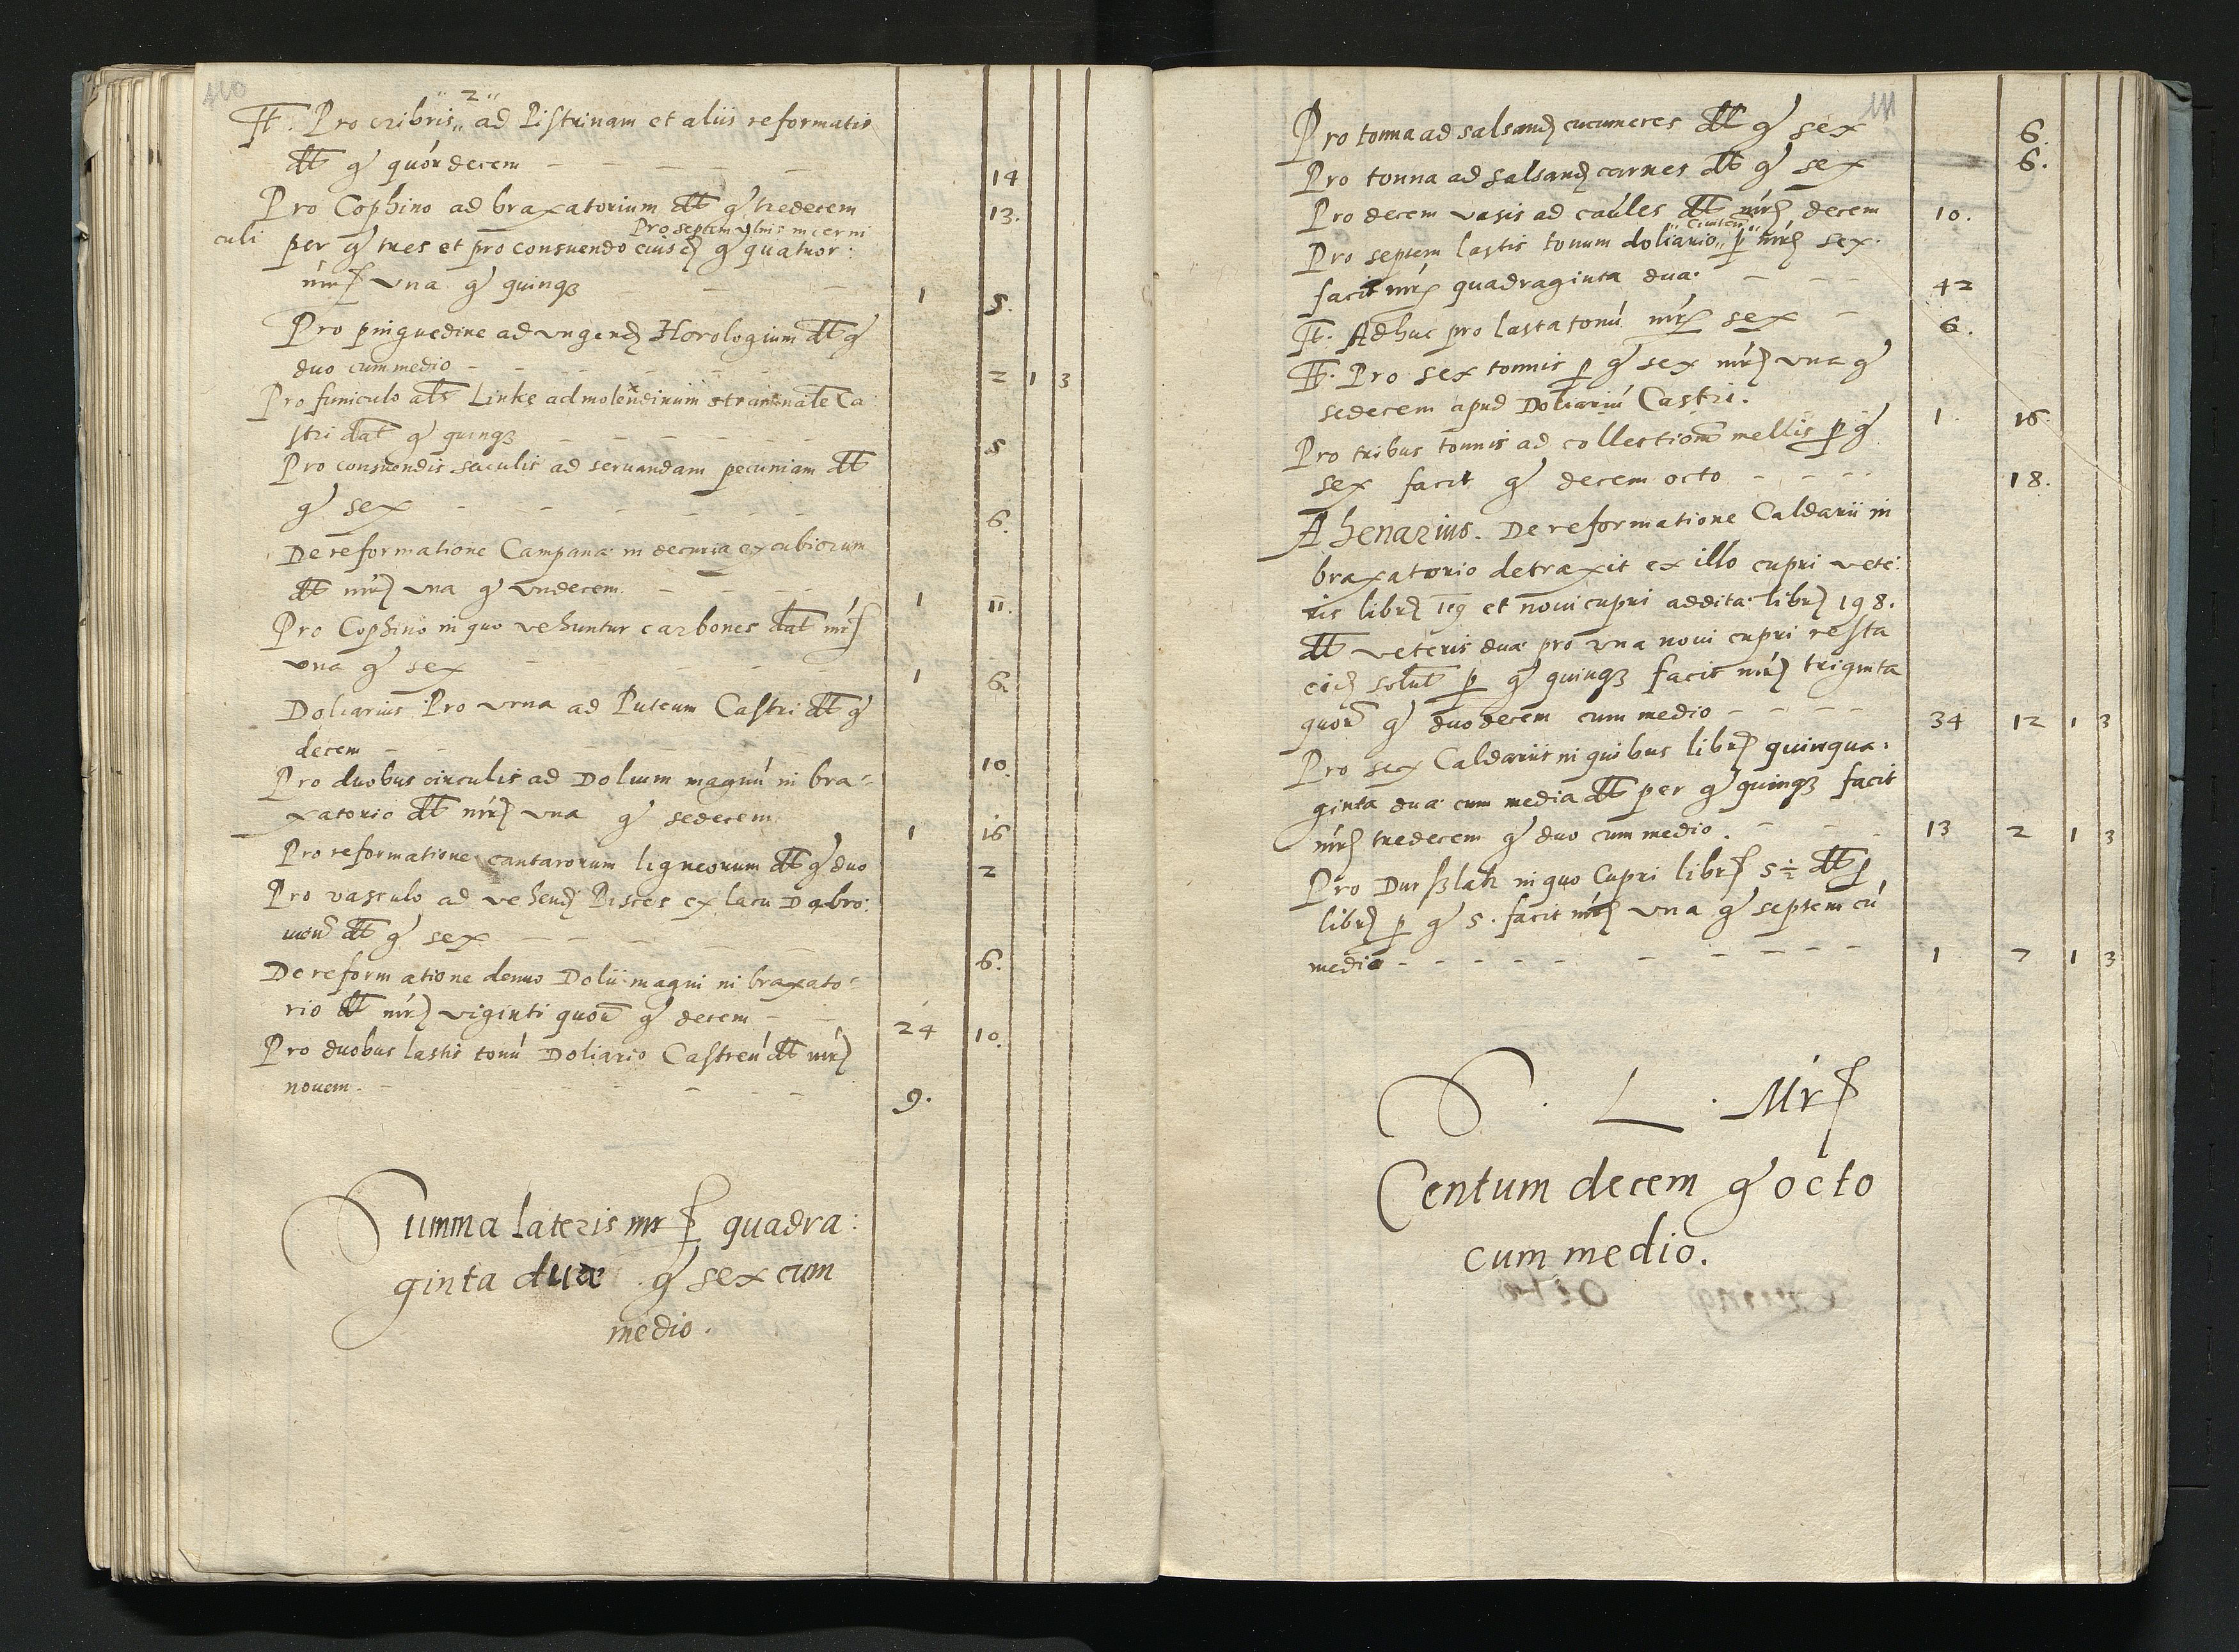 110
"2"
It. Pro cribris,, ad Pistrinam et aliis reformatis
dt g quordecem 14
Pro Cophino ad braxatorium dt g tredecem 13.
Pro septem vlnis incerni
culi per g tres et pro consuendo eiusd g quatuor:
mr vna g quinq3 1 5.
Pro pinguedine ad vngend Horologium dt g
duo cum medio 2 1 3
Pro funiculo als Linke ad molendinum straminale Ca
stri dat g quinq3 5
Pro consuendis saculis ad seruandam pecuniam dt
g sex 6.
De reformatione Campanæ in decuria excubiorum
dt mr vna g vndecem 1 11.
Pro Cophino in quo vehuntur carbones dat mr
vna g sex 1 6.
Doliarius Pro vrna ad Puteum Castri dt g
decem 10.
Pro duobus circulis ad Dolium magnu in bra-
xatorio dt mr vna g sedecem 1 16
Pro reformatione cantarorum ligneorum dt g duo 2
Pro vasculo ad vehend Pisces ex lacu Dabro:
uon dt g sex 6.
De reformatione denuo Dolii magni in braxato-
rio dt mr viginti quor g decem 24 10.
Pro duobus lastis tonu Doliario Castren dt mr
nouem. 9.
Summa lateris mr quadra:
ginta duæ g sex cum
medio.
111
Pro tonna ad salsand cucumeres dt g sex 6.
Pro tonna ad salsand carnes dt g sex 6.
Pro decem vasis ad caules dt mr decem 10.
Pro septem lastis tonnum doliario,, p mr sex.
facit mr quadraginta duæ 42
It. Adhuc pro lasta tonu mr sex 6.
It. Pro sex tonnis p g sex mr vna g
sedecem apud Doliariu Castri. 1. 16.
Pro tribus tonnis ad collection mellis p g
sex facit g decem octo 18.
Ahenarius. De reformatione Caldarii in
braxatorio detraxit ex illo cupri vete:
ris libr 119 et noui cupri additæ libr 198.
dt veteris duæ pro vna noui cupri resta
eid solut p g quinq3 facit mr triginta
quor g duodecem cum medio 34 12 1 3
Pro sex Caldariis in quibus libr quinqua:
ginta duæ cum media dt per g quinq3 facit
mr tredecem g duo cum medio. 13 2 1 3
Pro Durßlak in quo Cupri libr 5½ dt p
libr p g 5. facit mr vna g septem cu
medio 1 7 1 3
S. L. Mr
Centum decem g octo
cum medio.